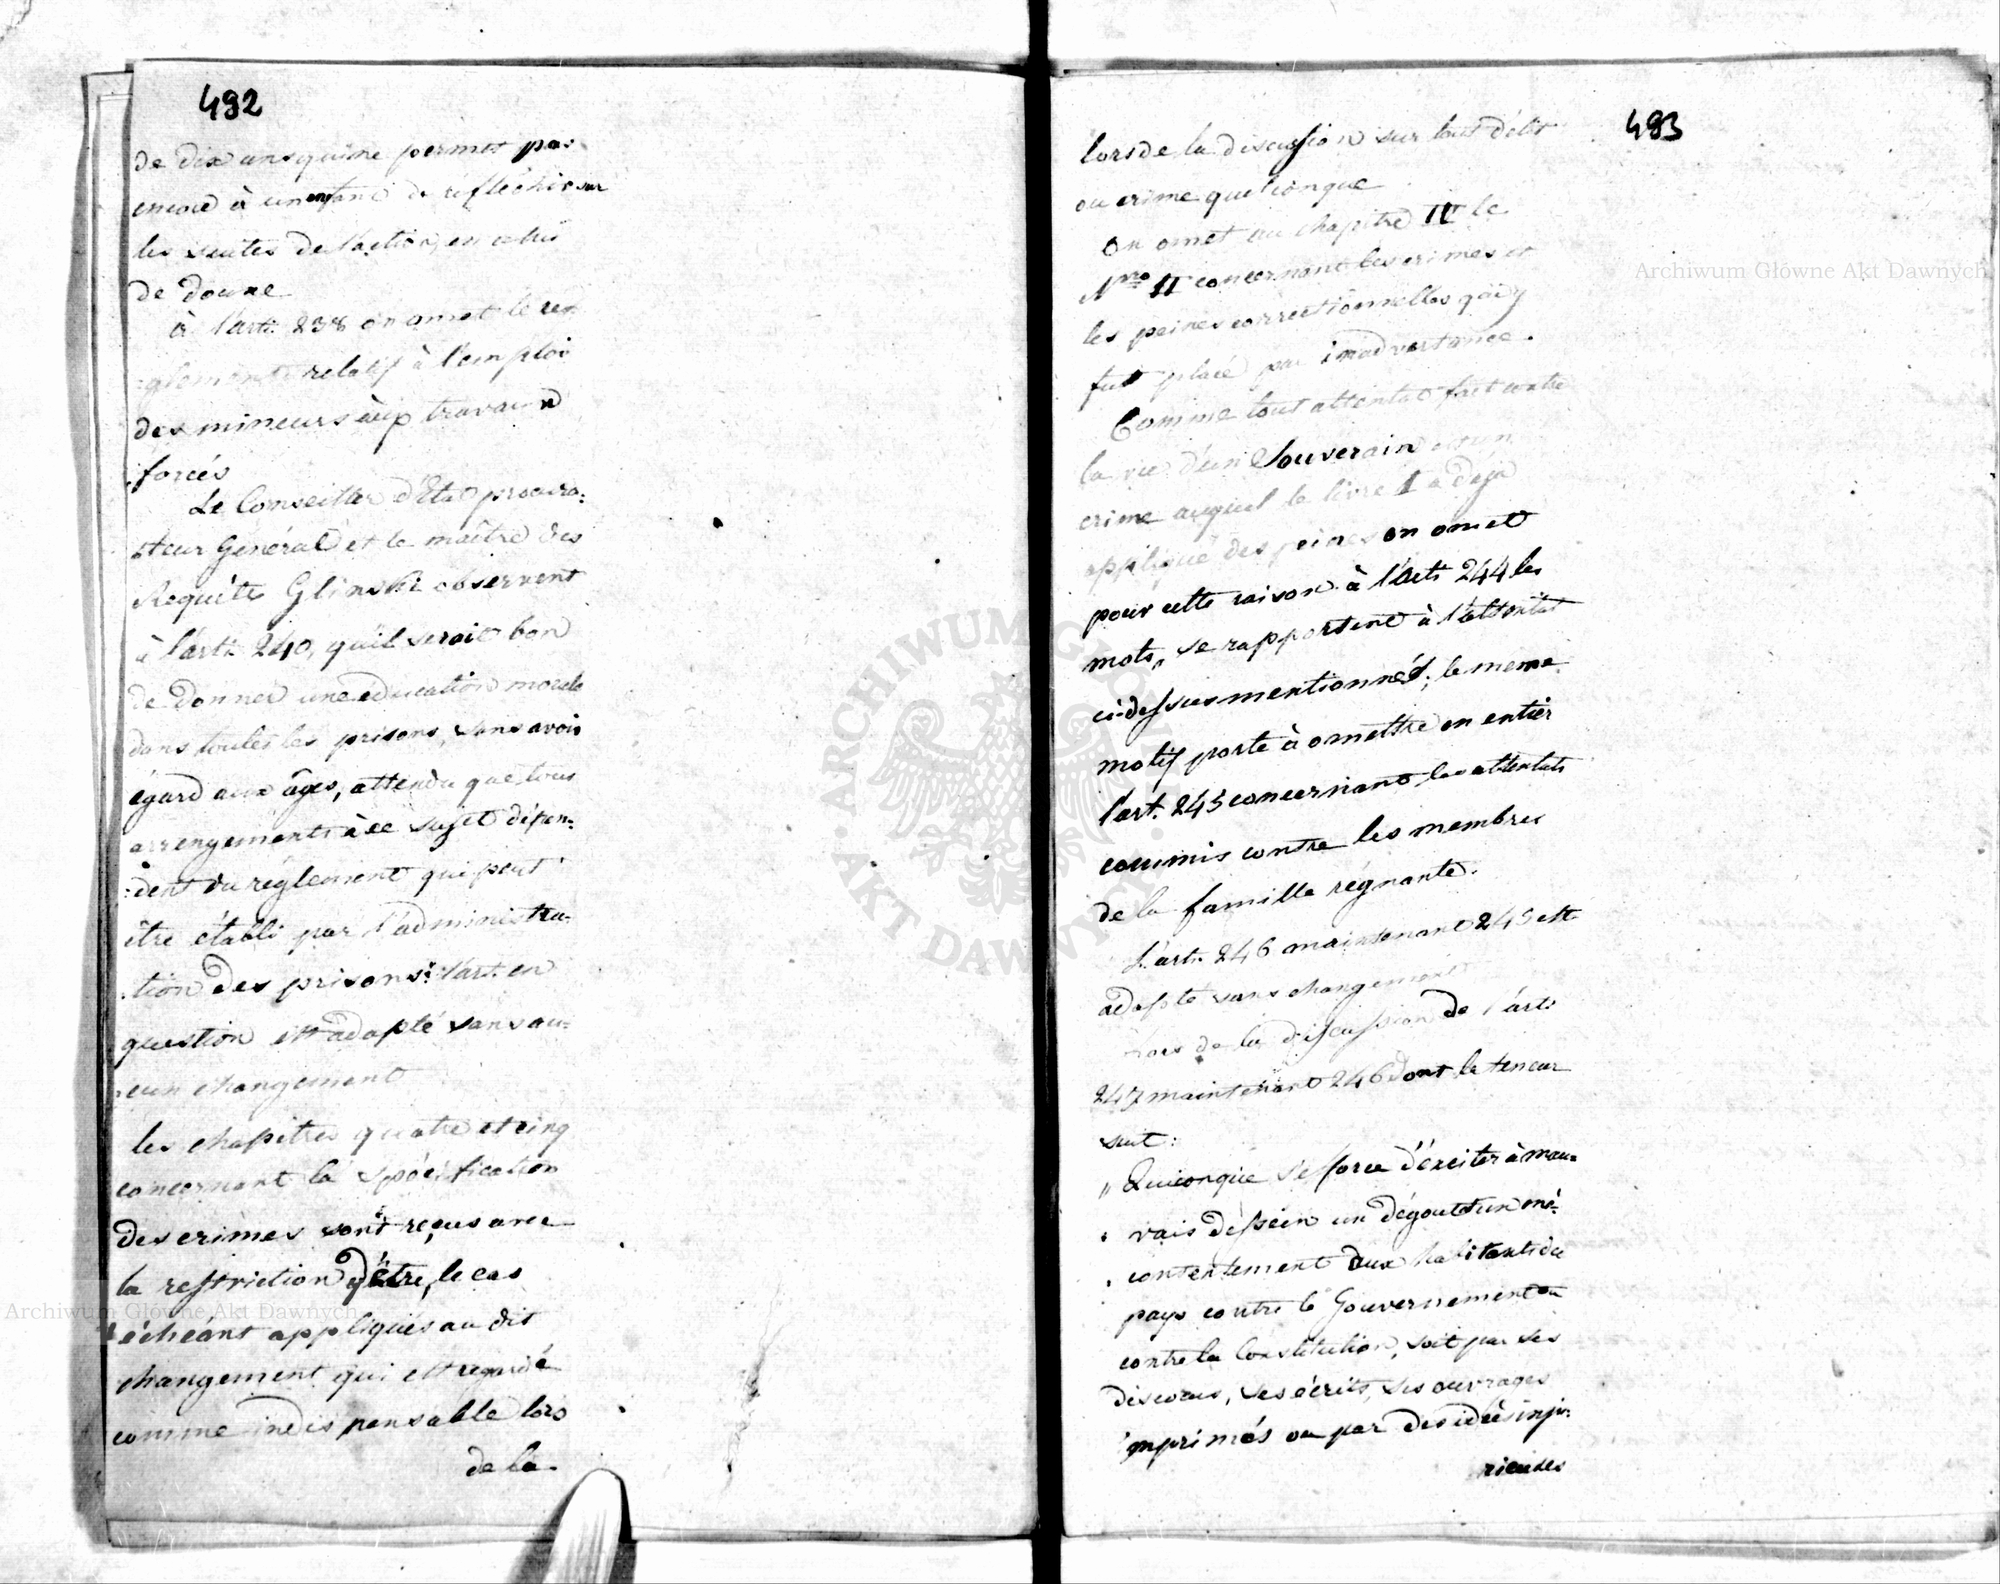 492
de dix ans qui ne permet pas
encore à un enfant de réfléchir sur
les suites de l'action, en celui
de douze
à l'art: 238 on omet le re=
=glement relatif à l'emploi
des mineurs aux travaux
forcés
Le Conseiller d'Etat procura=
=teur Général et le maître des
Requêtes Glinski observent
à l'art: 240, qu'il serait bon
de donner une education morale
dans toutes les prisons, sans avoir
égard aux âges, attendu que tous
arrengements à ce sujet dépen=
=dent du réglement qui peut
être établi par l'administra=
=tion des prisons: l'art. en
question est adopté sans au=
=cun changement
les chapitres quatre et cinq
concernant la spécification
des crimes sont reçus avec
la restriction d'être, le cas
échéant appliqués au dit
changement qui est regardé
comme indispensable lors
de la
493
lors de la discussion sur tout délit
ou crime quelconque
On omet au chapitre IV le
Nro II concernant les crimes et
les peines correctionnelles qui y
fut placé par inadvertance.
Comme tout attentat fait contre
la vie d'un Souverain est un
crime auquel le livre I a deja
appliqué des peines on omet
pour cette raison à l'art: 244 les
mots, se rapportent à l'attentat
ci-dessus mentionnés; le meme
motif porte à omettre en entier
l'art. 245 concernant les attentats
commis contre les membres
de la famille régnante.
L'art: 246 maintenant 245 est
adopté sans changement
Lors de la discussion de l'art:
247 maintenant 246 dont la teneur
suit:
" Quiconque s'efforce d'exciter à mau=
" vais dessein un dégout et un mé=
" contentement aux habitants du
pays contre le Gouvernement ou
contre la Constitution, soit par ses
discours, ses écrits, ses ouvrages
imprimés ou par des idées inju=
rieuses
Archiwum Główne Akt Dawnych
Archiwum Główne Akt Dawnych
ARCHIWUM GŁÓWNE AKT DAWNYCH